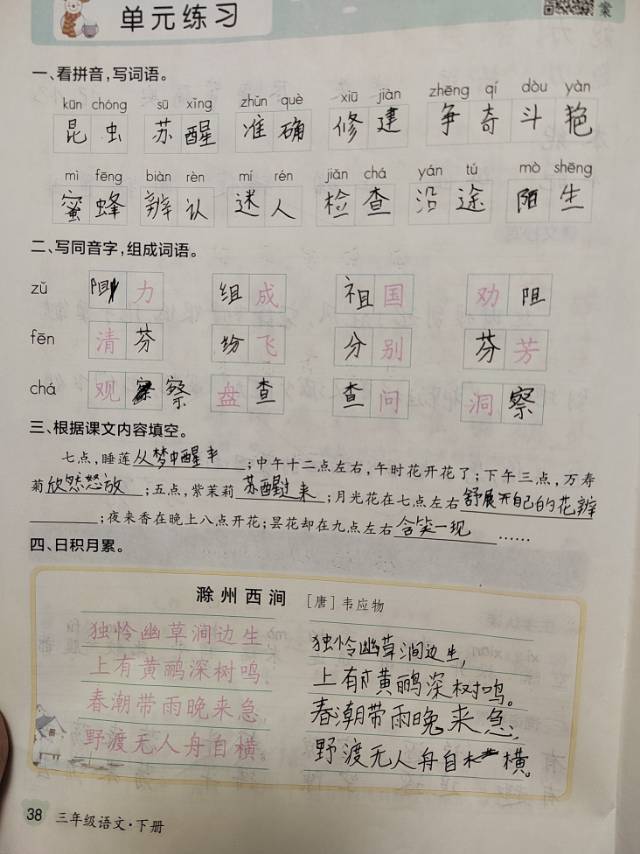 案
单元练习
一、看拼音,写词语。
kūn chóng sū xǐng zhǔn què xiū jiàn zhēng qí dòu yàn
昆虫 苏醒 准确 修建 争奇斗艳
mì fēng biàn rèn mí rén jiǎn chá yán tú mò shēng
蜜蜂 辨认 迷人 检查 沿途 陌生
二、写同音字,组成词语。
zǔ 阻力 组成 祖国 劝阻
fēn 清芬 纷飞 分别 芬芳
chá 观察 盘查 查问 洞察
三、根据课文内容填空。
七点,睡莲从梦中醒来;中午十二点左右,午时花开花了;下午三点,万寿
菊欣然怒放;五点,紫茉莉苏醒过来;月光花在七点左右舒展开自己的花瓣
;夜来香在晚上八点开花;昙花却在九点左右含笑一现……
四、日积月累。
滁州西涧 [唐]韦应物
独怜幽草涧边生, 独怜幽草涧边生,
上有黄鹂深树鸣。 上有黄鹂深树鸣。
春潮带雨晚来急, 春潮带雨晚来急,
野渡无人舟自横。 野渡无人舟自横。
38 三年级语文·下册